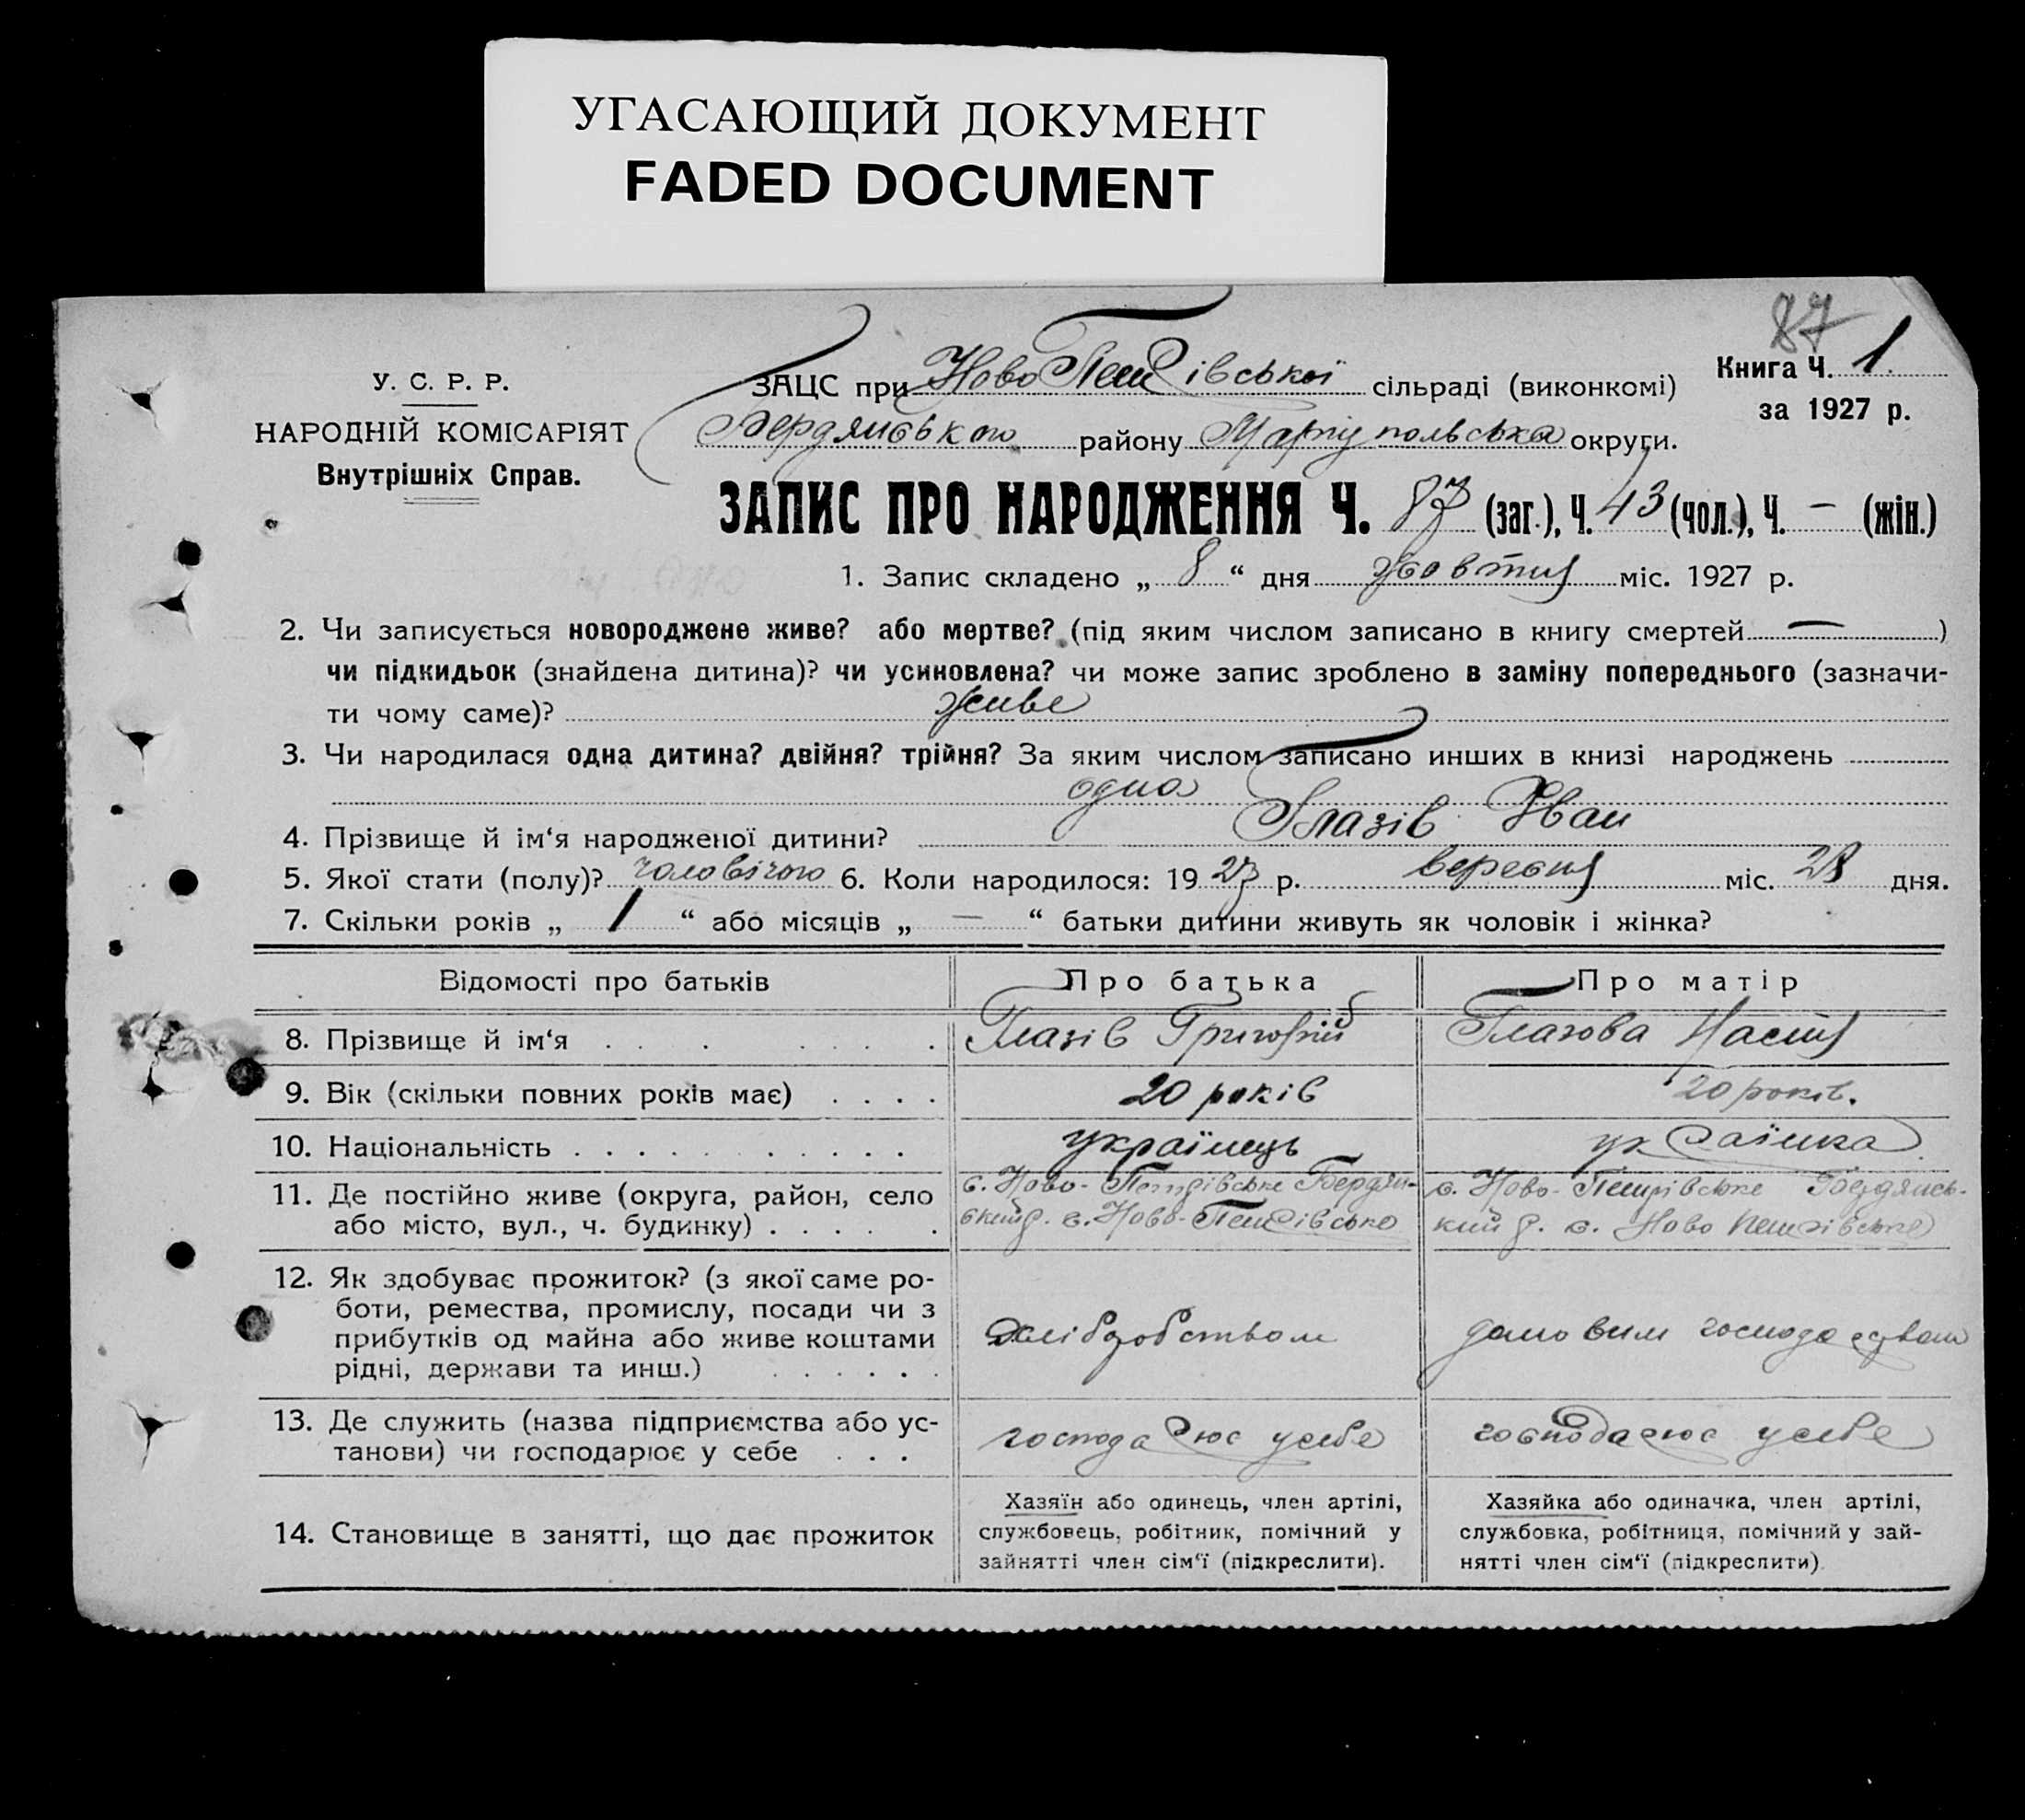 УГАСАЮЩИЙ ДОКУМЕНТ
FADED DOCUMENT
87
У. С. Р. Р.
НАРОДНІЙ КОМІСАРІЯТ
Внутрішніх Справ.
ЗАЦС при Ново Петрівської сільраді (виконкомі)
Бердянського району Маріупольська округи.
Книга Ч. 1.
за 1927 р.
ЗАПИС ПРО НАРОДЖЕННЯ Ч. 87 (заг.), Ч. 43 (чол.), Ч. — (жін.)
1. Запис складено „ 8 “ дня жовтня міс. 1927 р.
2. Чи записується новороджене живе? або мертве? (під яким числом записано в книгу смертей — )
чи підкидьок (знайдена дитина)? чи усиновлена? чи може запис зроблено в заміну попереднього (зазначи-
ти чому саме)? живе
3. Чи народилася одна дитина? двійня? трійня? За яким числом записано инших в книзі народжень
одна
4. Прізвище й ім‘я народженої дитини? Глазів Іван
5. Якої стати (полу)? чоловічого 6. Коли народилося: 1927 р. вересня міс. 28 дня.
7. Скільки років „ 1 “ або місяців „ — “ батьки дитини живуть як чоловік і жінка?
Відомості про батьків Про батька Про матір
8. Прізвище й ім‘я . . . . . . . Глазів Григорій Глазова Настя
9. Вік (скільки повних років має) . . . . 20 років 20 років.
10. Національність . . . . . . . . . . . українець українка
11. Де постійно живе (округа, район, село с. Ново-Петрівське Бердян- с. Ново-Петрівське Бердянсь-
або місто, вул., ч. будинку) . . . . . ський р. с. Ново-Петрівське кий р. с. Ново Петрівське
12. Як здобуває прожиток? (з якої саме ро-
боти, ремества, промислу, посади чи з
прибутків од майна або живе коштами
рідні, держави та инш.) . . . . . .
хліборобством домовим господарством
13. Де служить (назва підприємства або ус-
танови) чи господарює у себе . . .
господарює у себе господарює у себе
14. Становище в занятті, що дає прожиток
Хазяїн або одинець, член артілі,
службовець, робітник, помічний у
зайнятті член сім‘ї (підкреслити).
Хазяйка або одиначка, член артілі,
службовка, робітниця, помічний у зай-
нятті член сім‘ї (підкреслити)